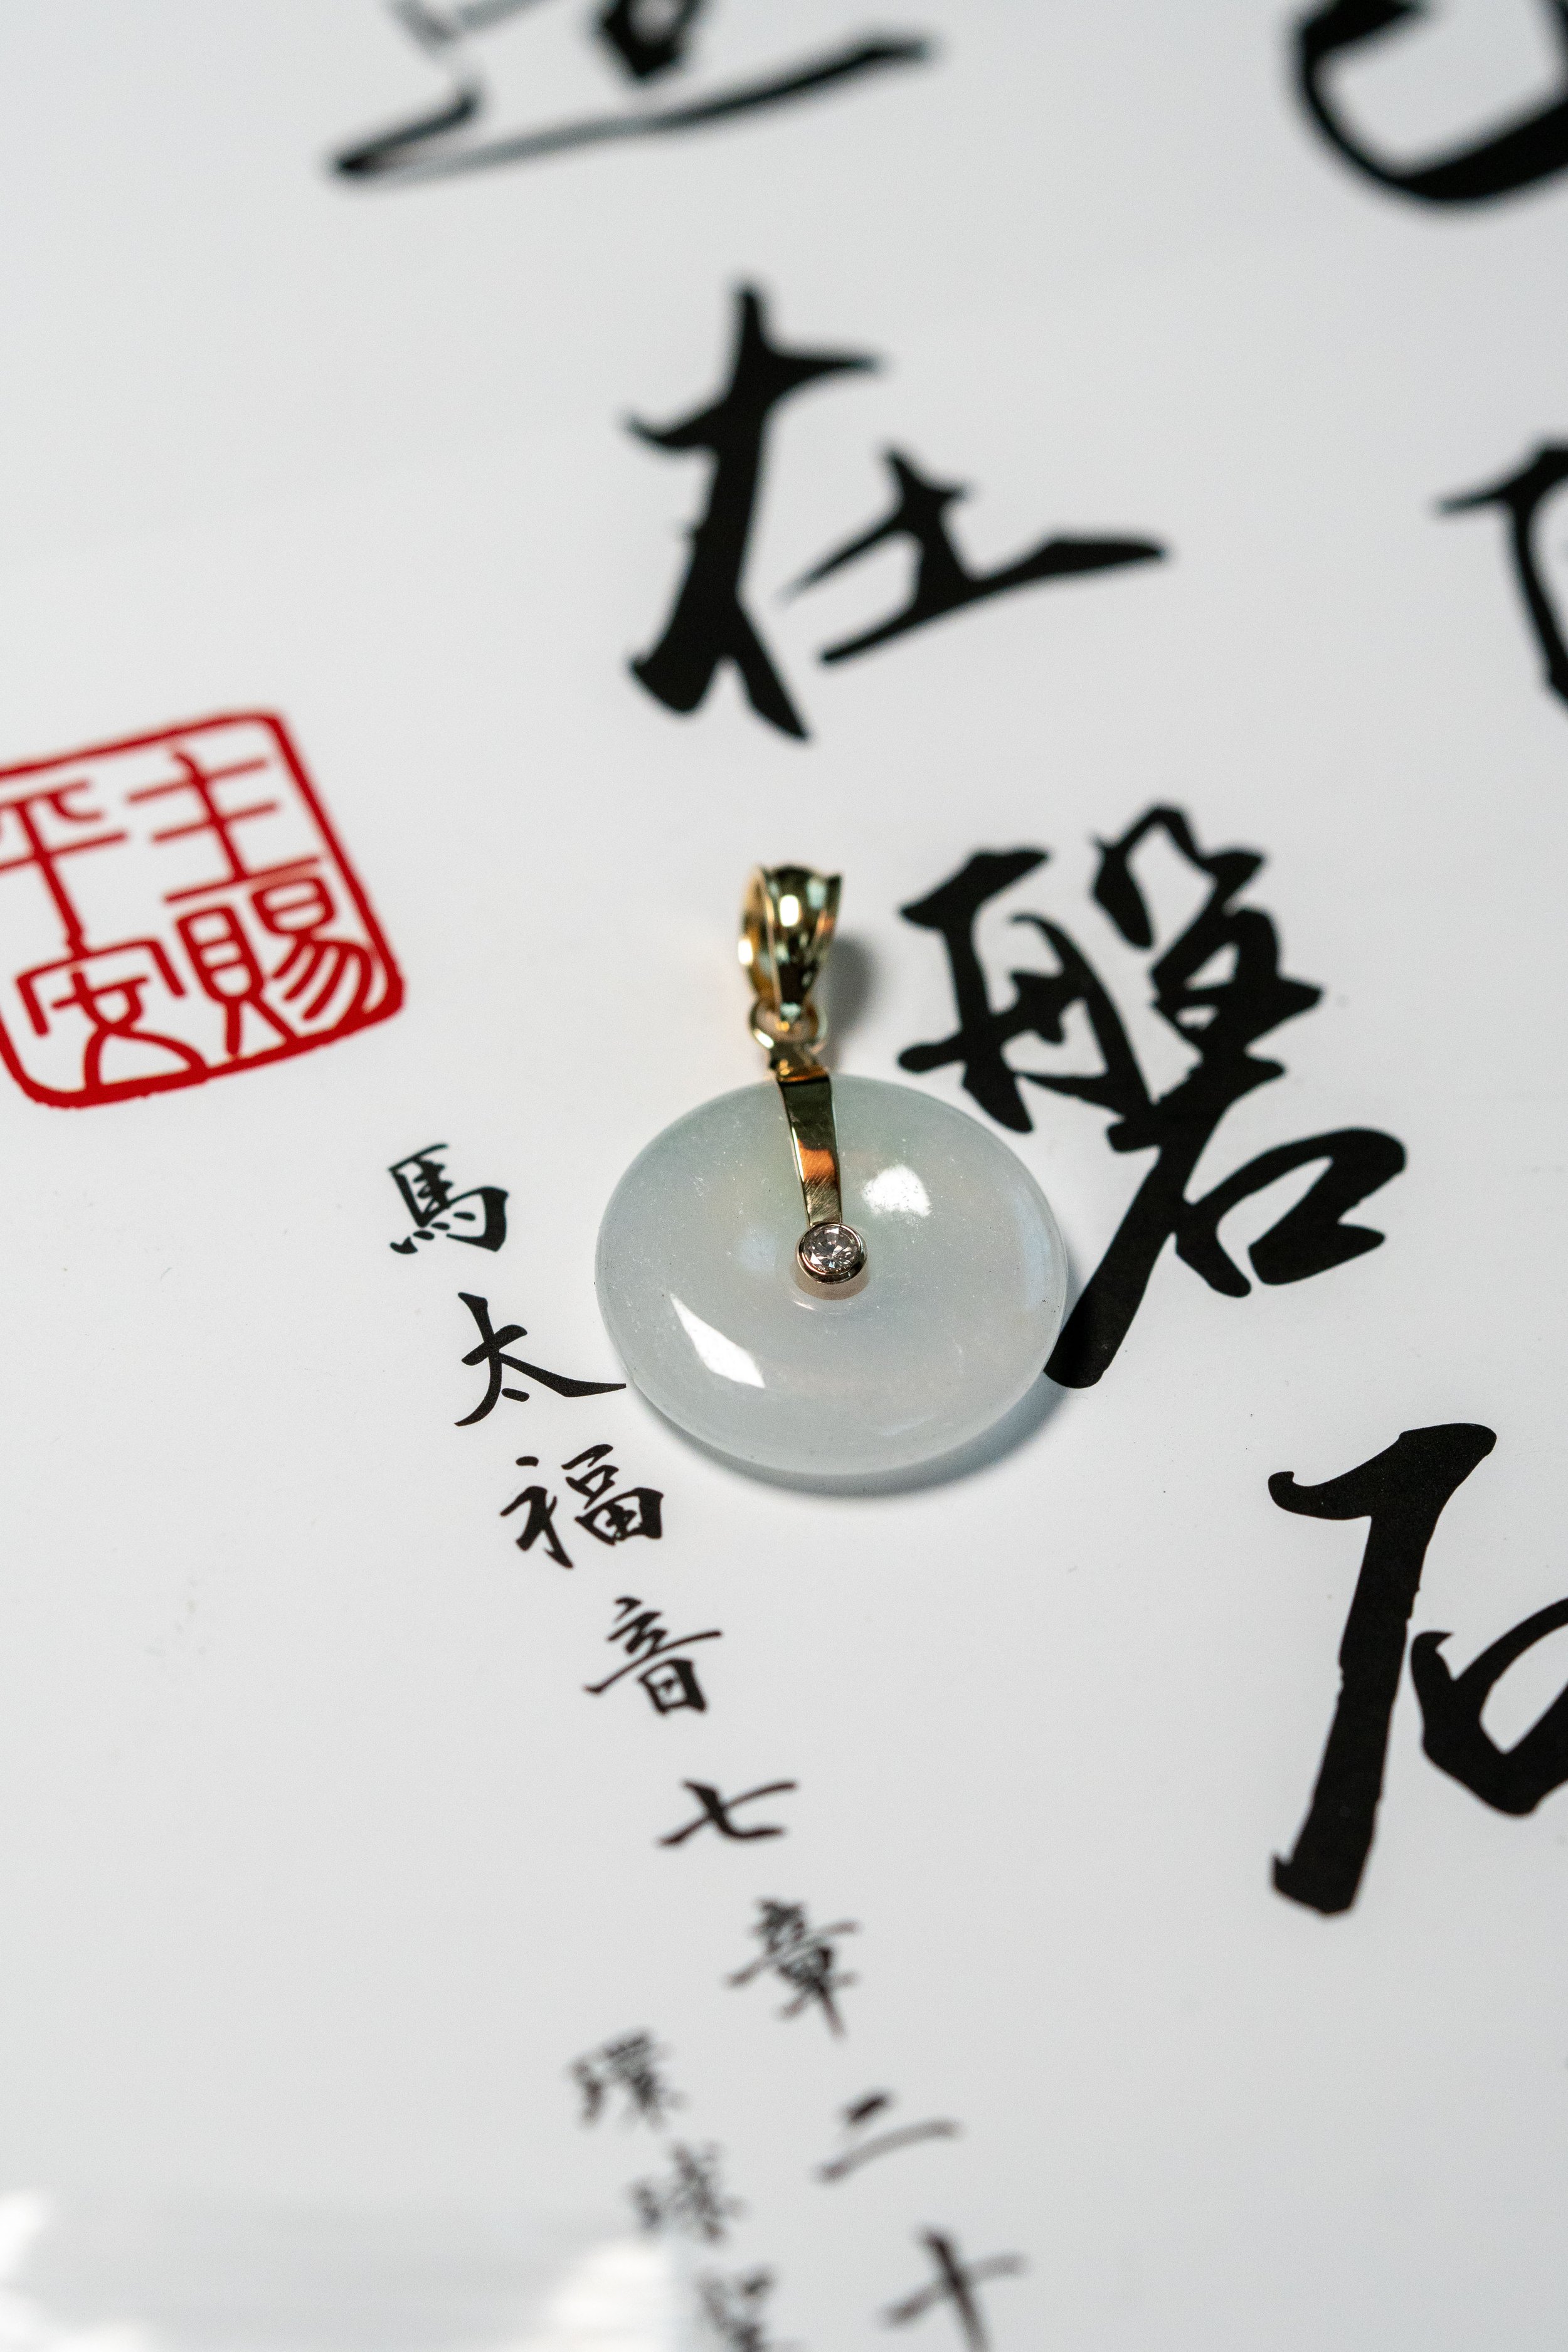 在磐石
主賜平安
馬太福音七章二十
環球聖